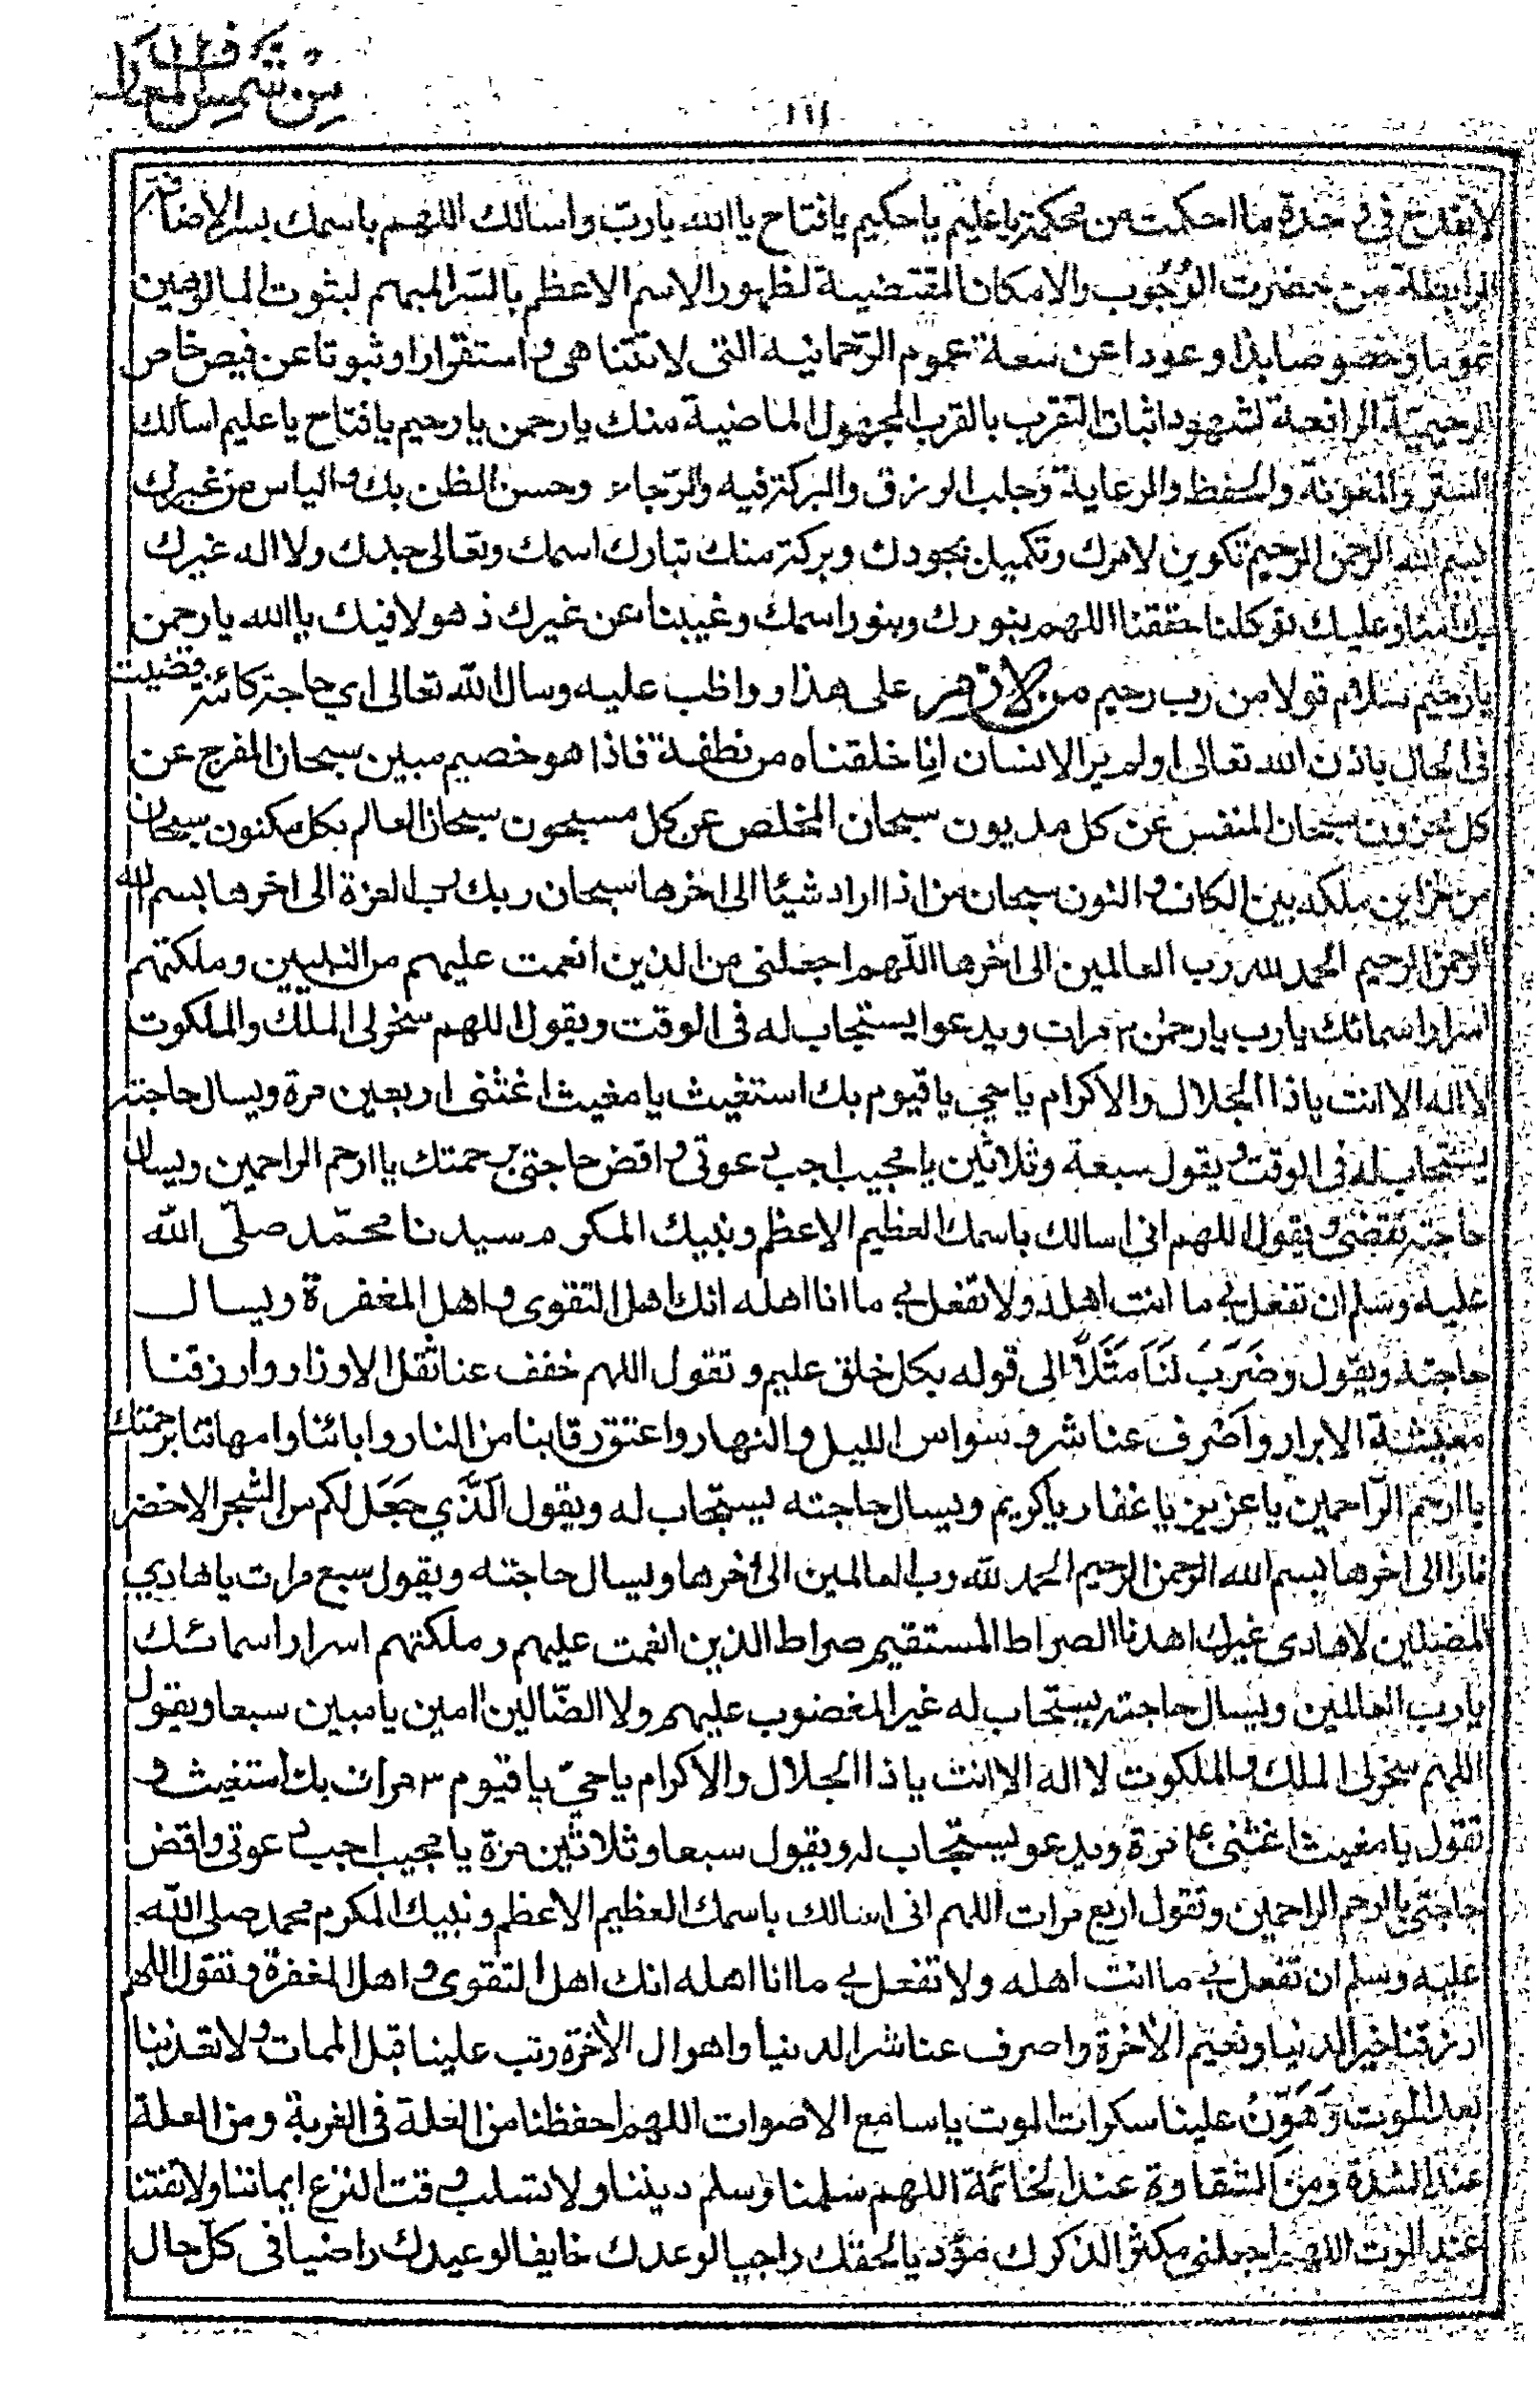 من شمس المعا
١١١
لا تقدح فى وحدة ما احكمت من محكمة يا عليم يا حكيم يا فتاح يا الله يا ربّ واسالك اللهم باسمك بسر الاضافة
الرابطة من حضرت الوُجُوب والامكان المقتضية لظهور الاسم الاعظم بالسّر المبهم لبثوت المالوهين
عموما وخصوصا بدا وعودا عن سعة عموم الرّحمانية التى لا تتناهى و استقرارا وثبوتا عن فيض خاص
الرحيميّة الرافعة لشهود اثبات التقرب بالقرب المجهول الماضية منك يا رحمن يا رحيم يا فتاح يا عليم اسألك
الستر والمعونة والحفظ والرعاية وجلب الرزق والبركة فيه والرّجاء وحسن الظن بك و الياس من غيرك
بسم الله الرحمن الرحيم تكوين لامرك وتكميل بجودك وبركة منك تبارك اسمك وتعالى جدك ولا اله غيرك
بك امنا وعليك توكلنا حققنا اللهم بنورك وبنور اسمك وغيبنا عن غيرك ذهولا فيك يا الله يا رحمن
يا رحيم سلام قولا من رب رحيم من لازم على هذا وواظب عليه وسال الله تعالى اي حاجة كائنة قضيت
فى الحال باذن الله تعالى اولم ير الانسان انا خلقناه من نطفة فاذا هو خصيم مبين سبحان المفرج عن
كل محزون سبحان المنفس عن كل مديون سبحان المخلص عن كل مسبحون سبحان العالم بكل مكنون سبحان
من خزاين ملكه بين الكاف و النون سبحان من اذا اراد شيئا الى اخرها سبحان ربك رب العزة الى اخرها بسم الله
الرحمن الرحيم الحمد لله رب العالمين الى اخرها اللّهم اجعلنى من الذين انعمت عليهم من النبيين وملكتهم
اسرار اسمائك يا رب يا رحمن ٣ مرات ويدعوا يستجاب له فى الوقت ويقول اللهم سخر لى الملك والملكوت
لا اله الا انت يا ذا الجلال والاكرام يا حي يا قيوم بك استغيث يا مغيث اغثنى اربعين مرة ويسال حاجته
يستجاب له فى الوقت و يقول سبعة وثلاثين يا مجيب اجب دعوتى و اقض حاجتى برحمتك يا ارحم الراحمين ويسال
حاجته تقضى و يقول اللهم اني اسالك باسمك العظيم الاعظم ونبيك المكرم سيدنا محمّد صلّى الله
عليه وسلم ان تفعل بي ما انت اهله ولا تفعل بي ما انا اهله انك اهل التقوى و اهل المغفرة ويسال
حاجته ويقول وَضَرَبَ لَنَا مَثَلاً الى قوله بكل خلق عليم و تقول اللهم خفف عنا ثقل الاوزار وارزقنا
معيشة الابرار واصْرف عنا شر وسواس الليل والنهار واعتق رقابنا من النار وابائنا وامهاتنا برحمتك
يا ارحم الرّاحمين يا عزيز يا غفار يا كريم ويسال حاجته يستجاب له ويقول الَّذي جَعَل لكم من الشجر الاخضر
نارا الى اخرها بسم الله الرحمن الرحيم الحمد لله رب العالمين الى اخرها ويسال حاجته ويقول سبع مرات يا هادي
المضلين لا هادى غيرك اهدنا الصراط المستقيم صراط الذين انعمت عليهم وملكتهم اسرار اسمائك
يا رب العالمين ويسال حاجته يستجاب له غير المغضوب عليهم ولا الضّالين امين يا مبين سبعا ويقول
اللهم سخر لى الملك و الملكوت لا اله الا انت يا ذا الجلال والاكرام يا حيّ يا قيوم ٣ مرات بك استغيث و
تقول يا مغيث اغثنى مرة ويدعو يستجاب له ويقول سبعا وثلاثين مرة يا مجيب اجب دعوتى واقض
حاجتى يا ارحم الراحمين وتقول اربع مرات اللهم انى اسالك باسمك العظيم الاعظم ونبيك المكرم محمد صلى الله
عليه وسلم ان تفعل بي ما انت اهله ولا تفعل بي ما انا اهله انك اهل التقوى و اهل المغفرة وتقول اللهم
ارزقنا خير الدنيا ونعيم الاخرة واصرف عنا شر الدنيا واهوال الاخرة وتب علينا قبل الممات و لا تعذبنا
بعد الموت وَهَوِّنْ علينا سكرات الموت يا سامع الاصوات اللهم احفظنا من العلة فى الغربة ومن العلة
عند الشدة ومن الشقاوة عند الخاتمة اللهم سلمنا وسلم ديننا ولا تسلب وقت النزع ايماننا ولا تفتنا
عند الموت اللهم اجعلنى مكثرا لذكرك مؤديا لحقك راجيا لوعدك خايفا لوعيدك راضيا فى كل حال